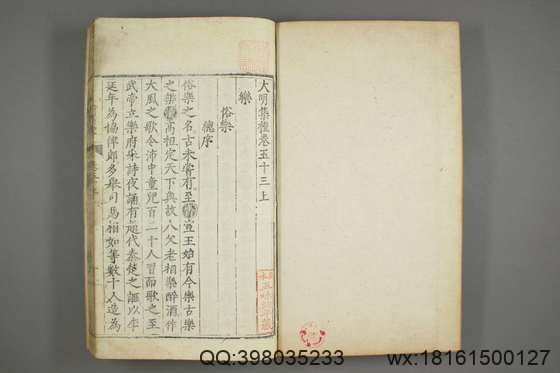 大明集禮卷五十三上
樂
俗樂
總序
俗樂之名古未嘗有至宣王始有今樂古樂
之樂高祖定天下與故人父老相樂醉酒作
大風之歌令沛中童兒百二十人習而歌之至
武帝立樂府采詩夜誦有趙代秦楚之謳以李
延年為協律郎多舉司馬相如等數十人造為
QQ:398035233
wx:18161500127